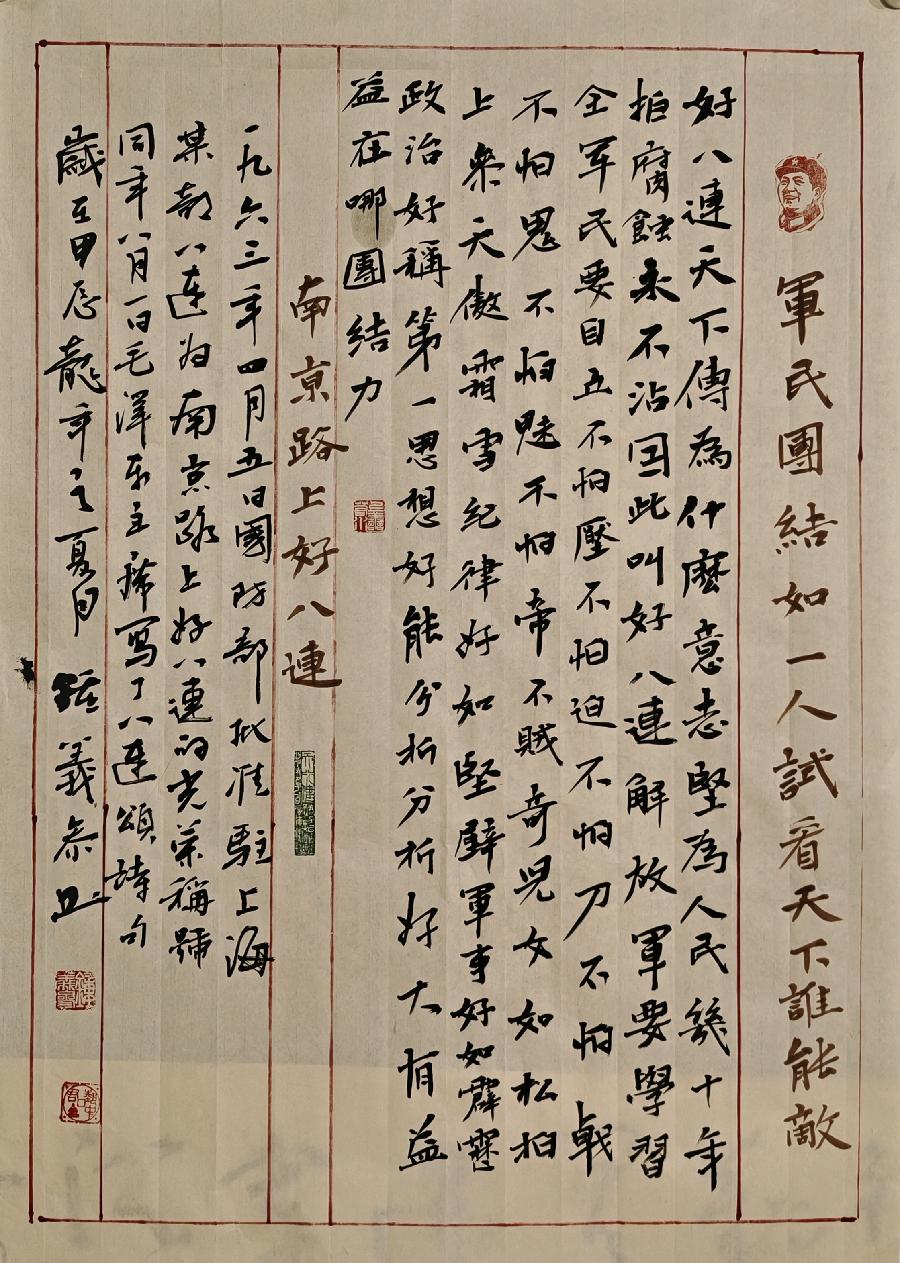 軍民團結如一人試看天下誰能敵
好八連天下傳為什麼意志堅為人民幾十年
拒腐蝕永不沾因此叫好八連解放軍要學習
全軍民要自立不怕壓不怕迫不怕刀不怕戟
不怕鬼不怕魅不怕帝不賊奇兒女如松柏
上參天傲霜雪紀律好如堅壁軍事好如霹靂
政治好稱第一思想好能分析分析好大有益
益在哪團結力
南京路上好八連
一九六三年四月五日國防部批准駐上海
某部八連为南京路上好八連的光荣稱號
同年八月一日毛澤东主席寫了八連頌詩句
歲在甲辰龍年之夏月 義 书